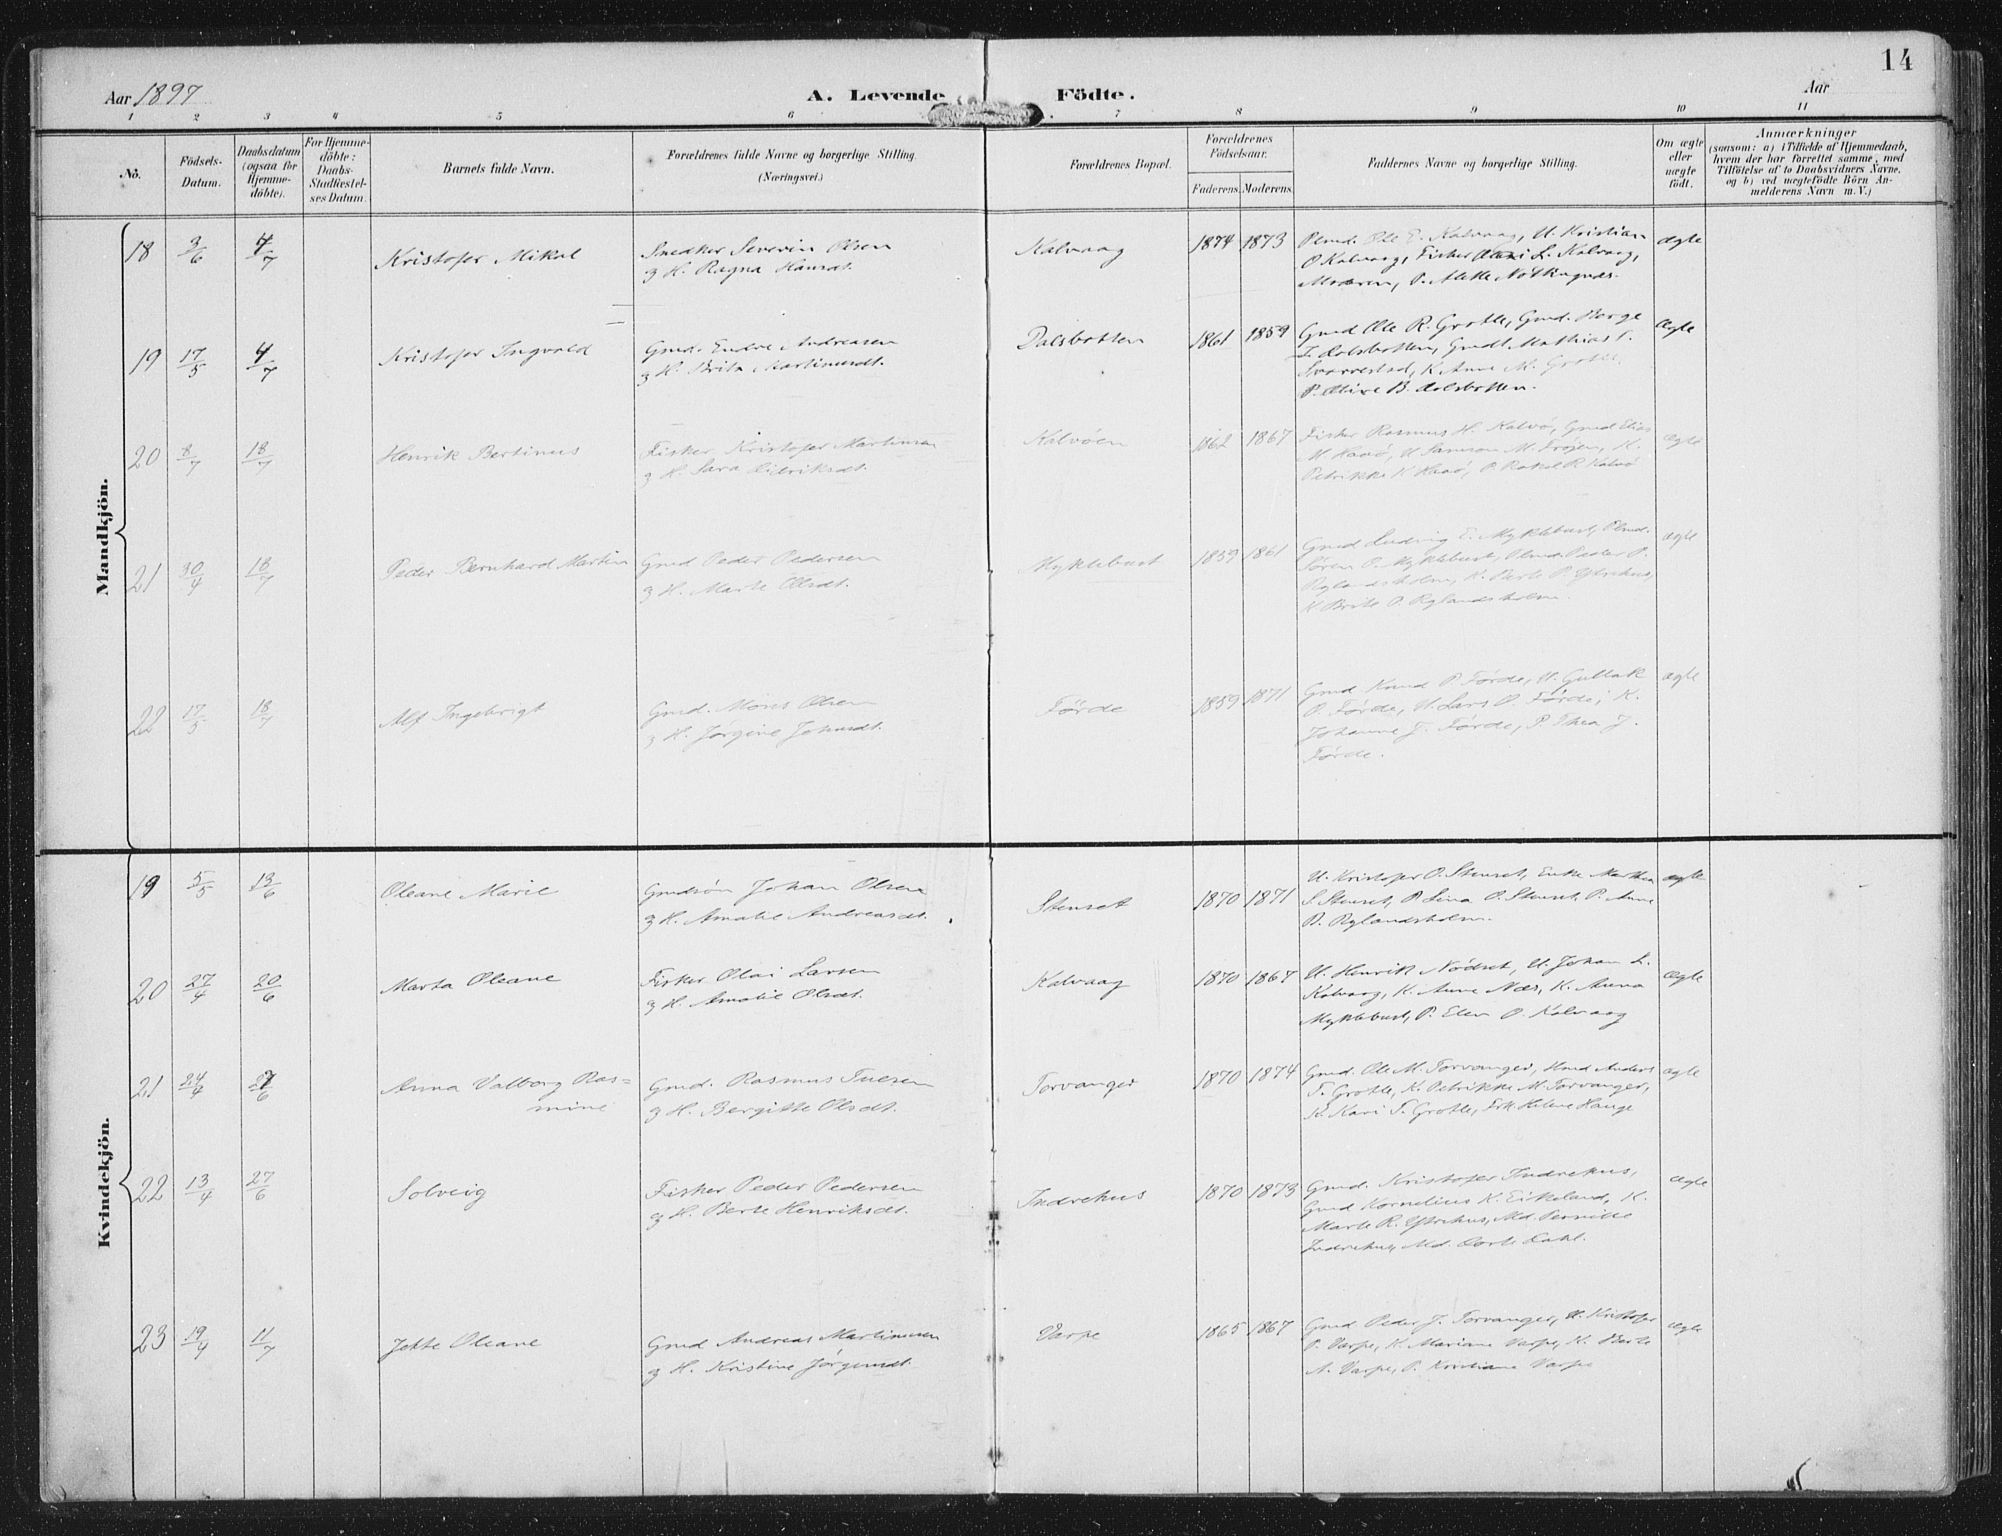 14
Aar 1897
A. Levende Födte.
Aar
1 2 3 4 5 6 7 8 9 10 11
No.
Födsels-
Datum.
Daabsdatum
(ogsaa för
Hjemme-
döbte).
For Hjemme-
döbte:
Daabs-
Stadfæstel-
ses Datum.
Barnets fulde Navn.
Forældrenes fulde Navne og borgerlige Stilling.
(Næringsvei.)
Forældrenes Bopæl.
Forældrenes
Födselsaar.
Faderens. Moderens.
Faddernes Navne og borgerlige Stilling.
Om ægte
eller
uægte
födt.
Anmærkninger
(saasom: a) i Tilfælde af Hjemmedaab,
hvem der har forrettet samme, med
Tilföielse af to Daabsvidners Navne,
og b) ved uægtefödte Börn An-
melderens Navn m. V.)
Mandkjön.
18 3/6 4/7 Kristofer Mikal
Snedker Severin Olsen
og H. Ragna Hansdt.
Kalvaag 1874 1873
Plmd. Ole E. Kalvaag, U. Kristian
O Kalvaag, Fisker Olai L. Kalvaag,
Moderen, P. Alette Nötkingnæs.
ægte
19 17/5 4/7 Kristofer Ingvald
Gmd. Endre Andreasen
og H. Brita Martinusdt.
Dalsbotten 1861 1859
Gmd Ole R. Grotle, Gmd. Borge
I. Dalsbotten, Gmdt Mathias T.
Svarvestad, K. Anne M. Grotle,
P. Oline B. Dalsbotten.
ægte
20 8/7 18/7 Henrik Bertinus
Fisker Kristofer Martinsen
og H. Sara Didriksdt.
Kalvöen 1862 1867
Fisker Rasmus H. Kalvö, Gmd Elias
M Haaö, U Samson M. Fröjen, K.
Petrikke K Haaö, P. Rakel R Kalvö
ægte
21 30/4 18/7 Peder Bernhard Martin
Gmd Peder Pedersen
og H. Marte Olsdt.
Myklebust 1859 1861
Gmd Ludvig E. Myklebust, Plmd.
Sören P. Myklebust, Plmd. Peder P.
Rylandsholm, K. Berte P. Ytrehus,
K Brite P. Rylandsholm.
ægte
22 17/5 18/7 Alf Ingebrigt
Gmd. Mons Olsen
og H. Jørgine Johnsdt.
Førde 1859 1871
Gmd. Knud P Førde, U. Gullak
O. Førde, U. Lars O. Førde, K.
Johanne J. Førde, P. Thea J.
Førde.
ægte
Kvindekjön.
19 5/5 13/6 Oleane Marie
Gmdsön Johan Olsen
og H. Amalie Andreasdt.
Stenset 1870 1871
U. Kristofer O. Stenset, Enke Marthea
S Stenset, P Lina O. Stenset, P. Anne
P. Rylandsholm.
ægte
20 27/4 20/6 Marta Oleane
Fisker Olai Larsen
og H. Amalie Olsdt.
Kalvaag 1870 1867
U. Henrik Nödset, U. Johan L.
Kalvaag, K. Anne Næs, K. Anna
Myklebust, P. Elen O. Kalvaag
ægte
21 24/4 27/6 Anna Valborg Ras=
mine
Gmd. Rasmus Tuesen
og H. Bergitte Olsdt.
Torvanger 1870 1874
Gmd. Ole M. Torvanger, Hmd Anders
T. Grotle, K. Petrikke M. Torvanger,
K. Kari T. Grotle, Frk. Helene Hauge
ægte
22 13/4 27/6 Solveig
Fisker Peder Pedersen
og H. Berte Henriksdt.
Indrehus 1870 1873
Gmd. Kristofer Indrehus,
Gmd Kornelius K. Eikeland, K.
Marte R. Ytrehus, Md. Pernille
Indrehus, Md. Dorte Dahl.
ægte
23 19/4 11/7 Jette Oleane
Gmd Andreas Martinusen
og H. Kristine Jørgensdt.
Varpe 1865 1867
Gmd Peder J. Torvanger, U. Kristofer
P. Varpe, K. Mariane Varpe, K. Berte
A. Varpe, P. Kristiane Varpe
ægte